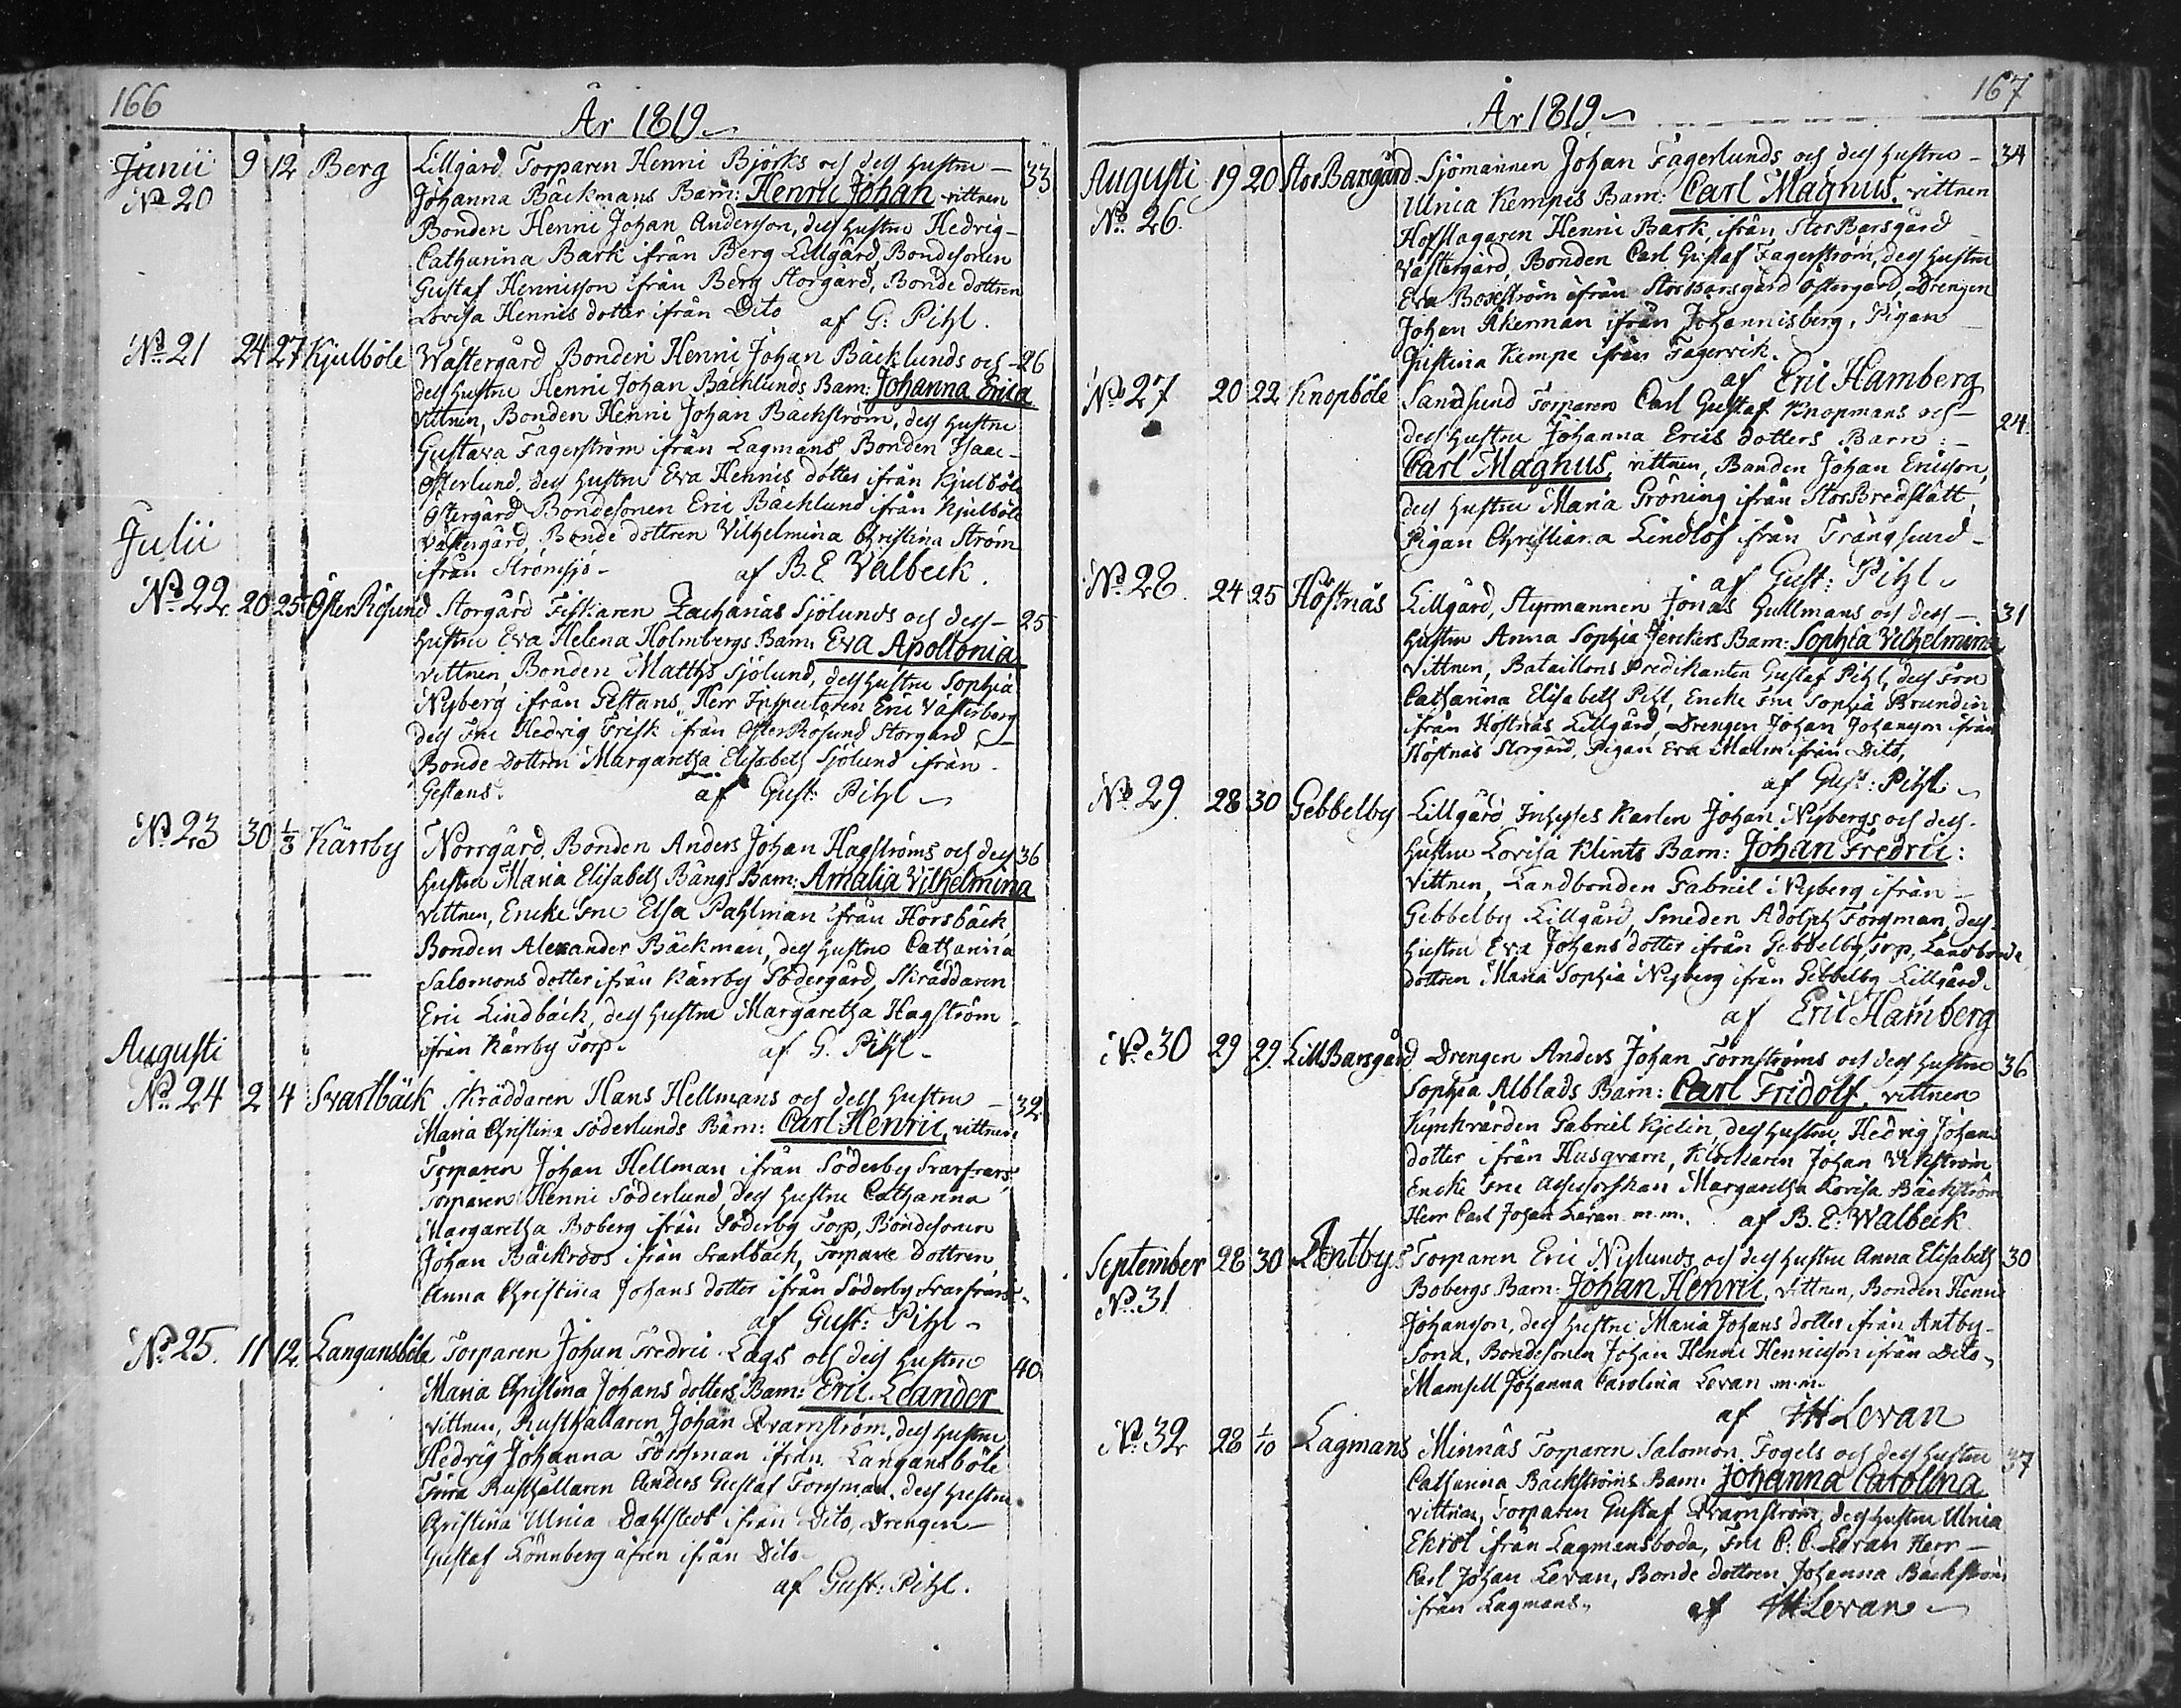 166
År 1819
Junii 9 12 Berg Lillgård Torparen Henric Björks och dess hustru 33
No 20 Johanna Bäckmans Barn: Henric Johan vittnen
Bonden Henric Johan Andersson, dess hustru Hedvig
Catharina Bark ifrån Berg Lillgård, Bondesonen
Gustaf Henricsson ifrån Berg Storgård, Bonde dottren
Lovisa Henrics dotter ifrån Dito af G: Pihl.
No 21 24 27 Kjulböle Wästergård Bonden Henric Johan Bäcklunds och 26
dess hustru Henric Johan Bäcklunds Barn: Johanna Erica
Vittnen, Bonden Henric Johan Backström, dess hustru
Gustava Fagerström ifrån Lagmans Bonden Isaac
Österlund, dess hustru Eva Henrics dotter ifrån Kjulböle
Östergård Bondesonen Eric Bäcklund ifrån Kjulböle
Västergård, Bonde dottren Vilhelmina Christina Ström
Julii
ifrån Strömsjö af B. E. Valbeck.
No 22 20 25 Öster Risund Storgård Fiskaren Zacharias Sjölunds och dess 25
hustru Eva Helena Holmbergs Barn: Eva Apollonia
vittnen, Bonden Matths Sjölund, dess hustru Sophia
Nyberg ifrån Gestans, Herr Inspectoren Eric Västerberg
dess Fru Hedvig Frisk ifrån Öster Risund Storgård,
Bonde Dottren Margaretha Elisabeth Sjölund ifrån
Gestans. af Gust: Pihl
No 23 30 1/8 Kärrby Norrgård, Bonden Anders Johan Hagströms och dess 36
hustru Maria Elisabeth Bångs Barn: Amalia Vilhelmina
vittnen, Encke Fru Elsa Pahlman ifrån Horsbäck
Bonden Alexander Bäckman, dess hustru Catharina
Salomons dotter ifrån Kärrby Södergård, Skräddaren
Eric Lindbäck, dess hustru Margaretha Hagström
ifrån Kärrby Torp. af G. Pihl
Augusti
No 24 2 4 Svartbäck Skräddaren Hans Hellmans och dess hustru 32
Maria Christina Söderlunds Barn: Carl Henric, vittnen
Torparen Johan Hellman ifrån Söderby Svarfvars,
Torparen Henric Söderlund, dess hustru Catharina
Margaretha Boberg ifrån Söderby Torp, Bondesonen
Johan Bäckroos ifrån Svartbäck, Torpare dottren,
Anna Christina Johans dotter ifrån Söderby Svarfvars
af Gust: Pihl
No 25. 11 12 Langansböle Torparen Johan Fredric Lags och dess hustru 40
Maria Christina Johans dotters Barn: Eric Leander
vittnen, Rusthållaren Johan Qvarnström, dess hustru
Hedvig Johanna Forsman ifrån Langansböle
Rusthållaren Anders Gustaf Forsman, dess hustru
Christina Ulrica Dahlstedt ifrån Dito, Drengen
Gustaf Lönnberg äfven ifrån Dito
af Gust: Pihl.
167
År 1819
Augusti 19 20 Stor Barsgård Sjömannen Johan Fagerlunds och dess hustru 34
No 26. Ulrica Kempes Barn: Carl Magnus, vittnen
Hofslagaren Henric Bark ifrån Stor Barsgård
Västergård, Bonden Carl Gustaf Fagerström, dess hustru
Eva Boxström ifrån Stor Barsgård Östergård, Drengen
Johan Åkerman ifrån Johannisberg, Pigan
Justina Kempe ifrån Fagervik.
af Eric Hamberg
No 27 20 22 Knopböle Sandsund Torparen Carl Gustaf Knopmans och 24
dess hustru Johanna Erics dotters Barn:
Carl Magnus, vittnen, Bonden Johan Ericson,
dess hustru Maria Gröning ifrån Stor Bredslätt,
Pigan Christiana Lindlöf ifrån Trångsund
af Gust: Pihl
No 28. 24 25 Höstnäs Lillgård, Styrmannen Jonas Gullmans och dess 31
hustru Anna Sophia Jerckers Barn: Sophia Vilhelmina
Vittnen, Bataillons Predikanten Gustaf Pihl, dess Fru
Catharina Elisabeth Pihl, Encke Fru Sophia Brundin
ifrån Höstnäs Lillgård, Drengen Johan Johanson ifrån
Höstnäs Storgård, Pigan Eva Malm ifrån Dito,
af Gust: Pihl
No 29. 28 30 Gebbelby Lillgård Inhyses Karlen Johan Nybergs och dess
hustru Lovisa Klints Barn: Johan Fredric:
Vittnen, Landbonden Gabriel Nyberg ifrån
Gebbelby Lillgård, Smeden Adolph Forsman, dess
hustru Eva Johans dotter ifrån Gebbelby Torp, Landbonde
dottren Maria Sophia Nyberg ifrån Gebbelby Lillgård.
af Eric Hamberg
No 30 29 29. Lill Barsgård Drengen Anders Johan Törnströms och dess hustru 36
Sophia Alblads Barn: Carl Fridolf, vittnen
Kyrkvärden Gabriel Kjelin, dess hustru Hedvig Johans
dotter ifrån Husqvarn, Klockaren Johan Vikström,
Encke Fru Assessorskan Margaretha Lovisa Bäckström
Herr Carl Johan Levan m.m. af B. E. Walbeck
September 28 30 Antbys Torparen Eric Nylunds och dess hustru Anna Elisabeth 30
No 31 Bobergs Barn: Johan Henric, vittnen, Bonden Henric
Johanson, dess hustru Maria Johans dotter ifrån Antby
Norra, Bondesonen Johan Henric Henricsson ifrån Dito,
Mamsell Johanna Carolina Levan m.m.
af Levan
No 32 28 1/10 Lagmans Minnäs Torparen Salomon Fogels och dess hustru 37
Catharina Bäckströms Barn: Johanna Carolina
vittnen, Torparen Gustaf Qvarnström, dess hustru Ulrica
Ekrot ifrån Lagmansboda, Fru C. C. Levan Herr
Carl Johan Levan, Bonde dottren Johanna Bäckström
ifrån Lagmans, af Levan